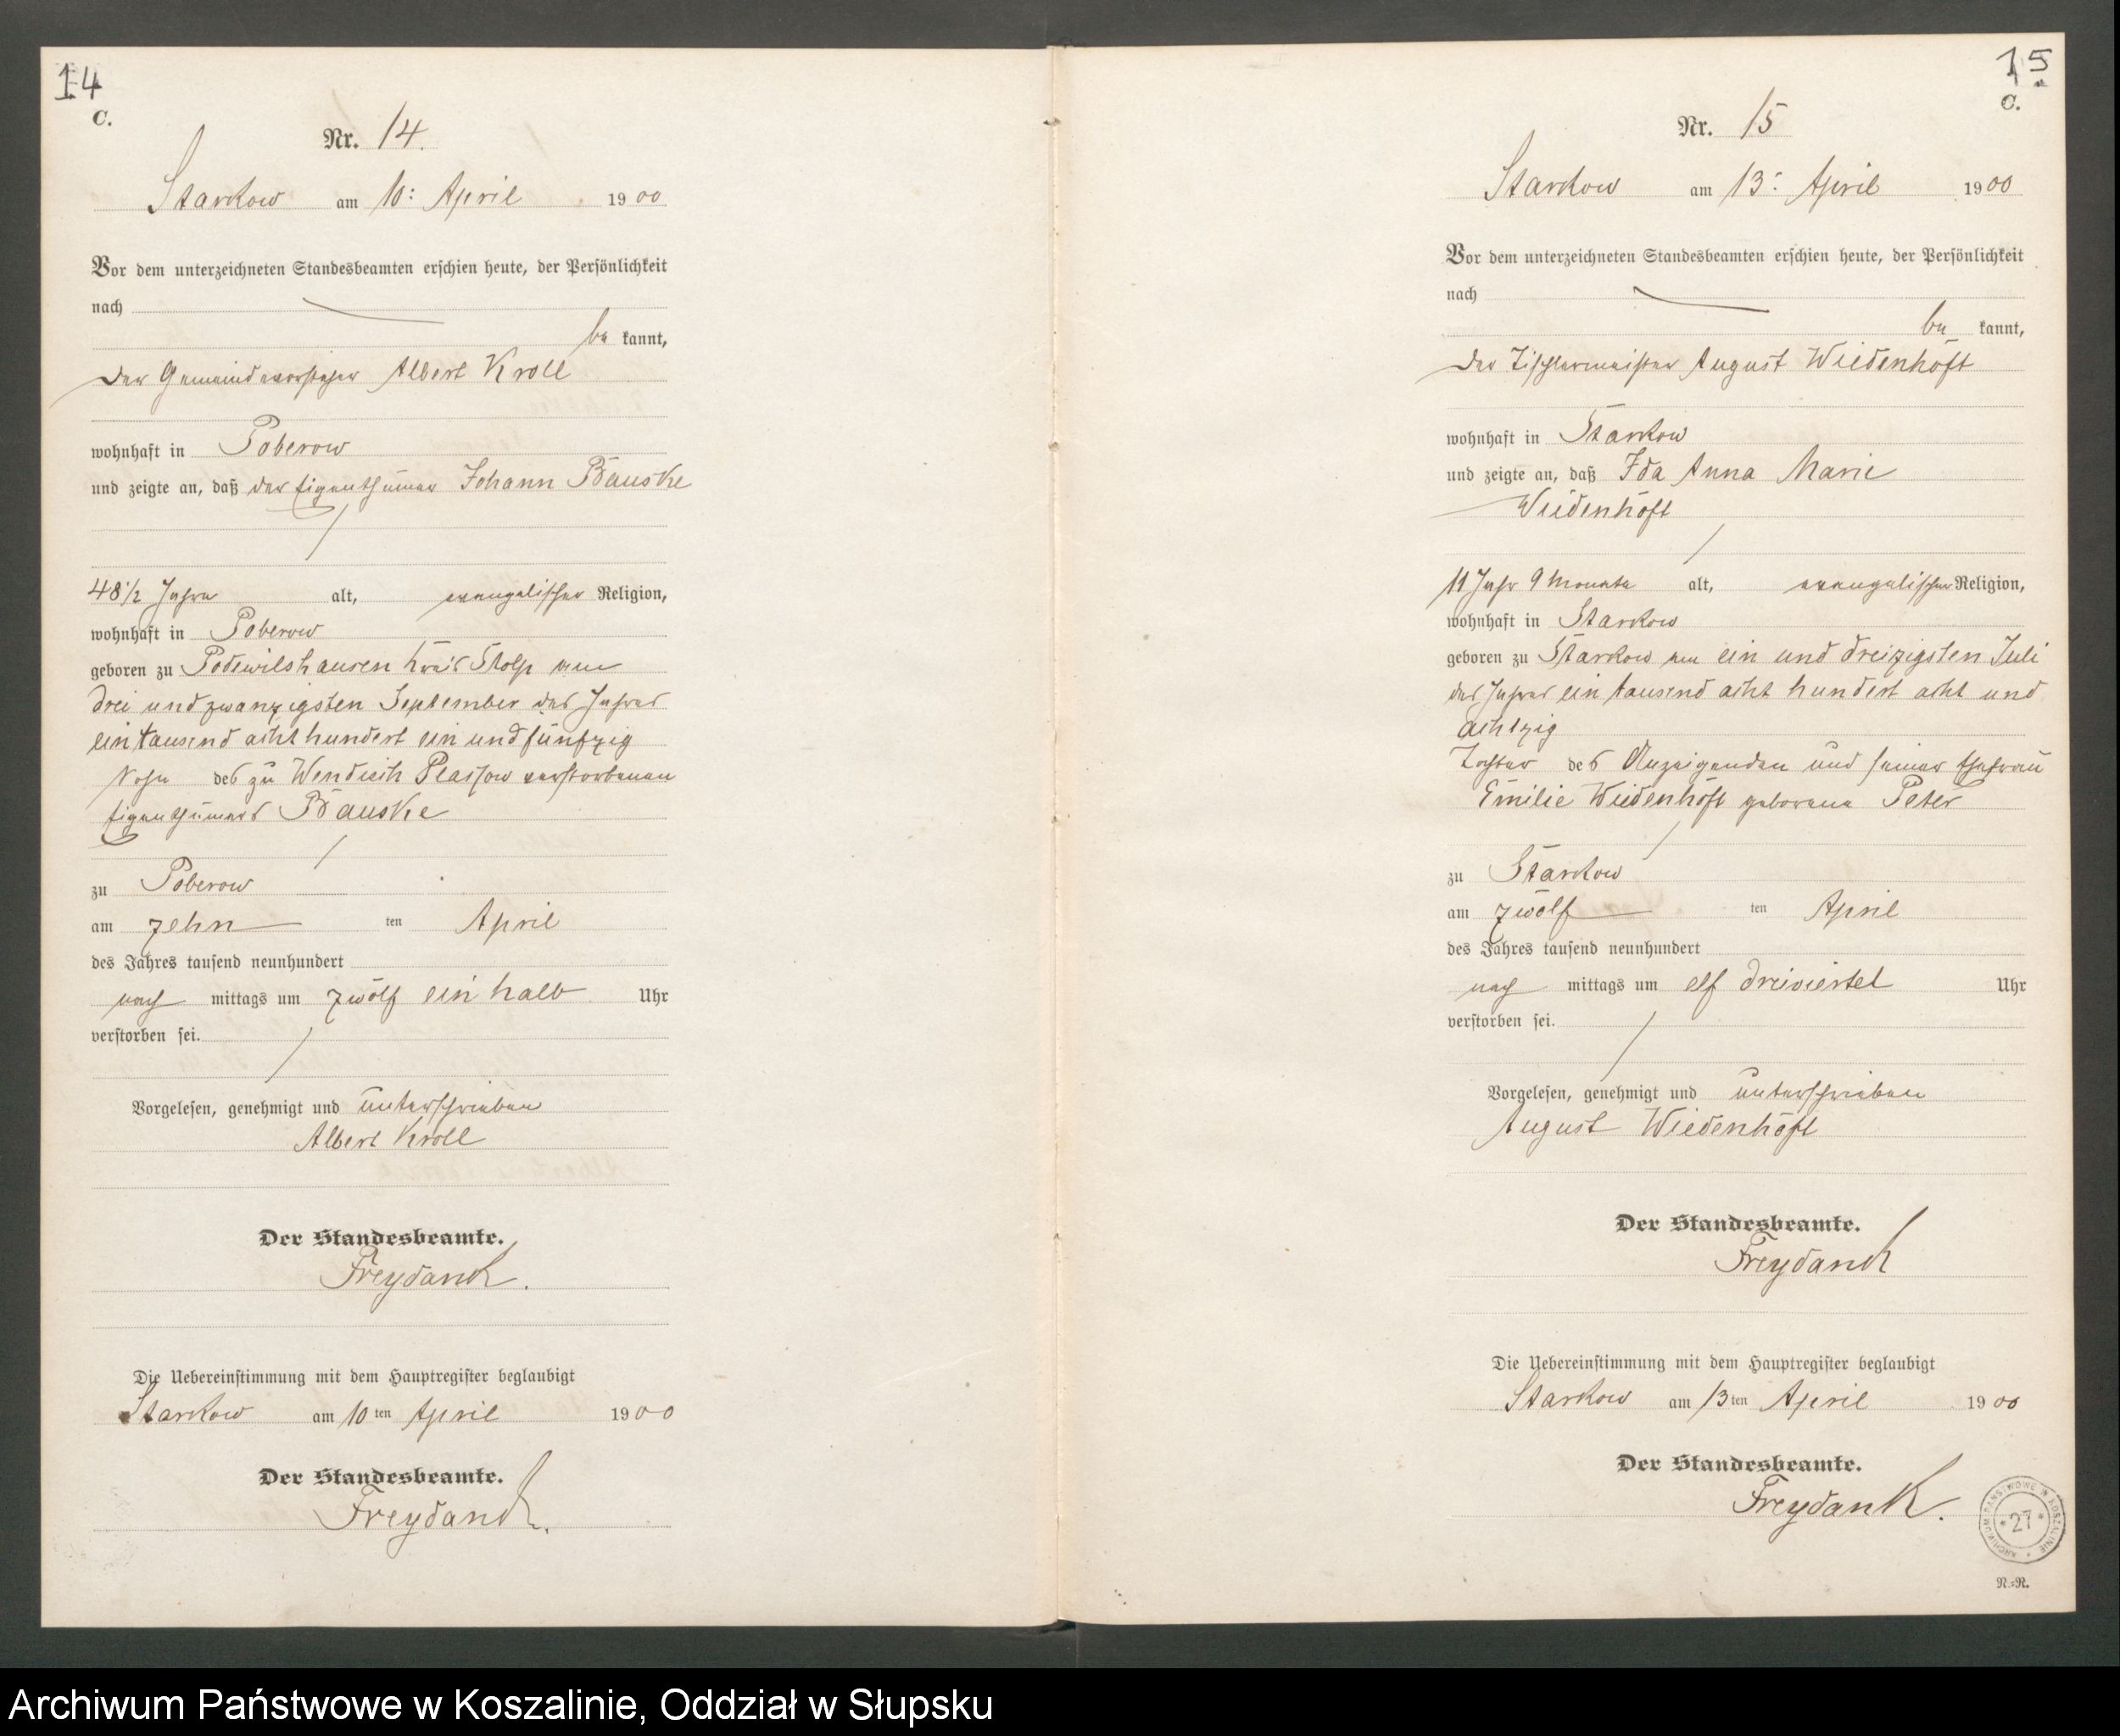 14
C.
Nr. 14.
Starkow am 10: April 1900
Vor dem unterzeichneten Standesbeamten erschien heute, der Persönlichkeit
nach
be kannt,
der Gemeindevorsteher Albert Kroll
wohnhaft in Poberow
und zeigte an, daß der Eigenthümer Johann Bauske
48 1/2 Jahre alt, evangelischer Religion,
wohnhaft in Poberow
geboren zu Podewilshausen Kreis Stolp am
drei und zwanzigsten September des Jahres
ein tausend acht hundert ein und fünfzig
Sohn des zu Wendisch Plassow verstorbenen
Eigenthümers Bauske
zu Poberow
am zehn ten April
des Jahres tausend neunhundert
nach mittags um zwölf ein halb Uhr
verstorben sei.
Vorgelesen, genehmigt und unterschrieben
Albert Kroll
Der Standesbeamte.
Freydank.
Die Uebereinstimmung mit dem Hauptregister beglaubigt
Starkow am 10 ten April 1900
Der Standesbeamte.
Freydank.
15
C.
Nr. 15
Starkow am 13: April 1900
Vor dem unterzeichneten Standesbeamten erschien heute, der Persönlichkeit
nach
be kannt,
der Tischlermeister August Wiedenhöft
wohnhaft in Starkow
und zeigte an, daß Ida Anna Marie
Wiedenhöft
11 Jahr 9 Monate alt, evangelischer Religion,
wohnhaft in Starkow
geboren zu Starkow am ein und dreizigsten Juli
des Jahres ein tausend acht hundert acht und
achtzig
Tochter des Anzeigenden und seiner Ehefrau
Emilie Wiedenhöft geborene Peter
zu Starkow
am zwölf ten April
des Jahres tausend neunhundert
nach mittags um elf dreiviertel Uhr
verstorben sei.
Vorgelesen, genehmigt und unterschrieben
August Wiedenhöft
Der Standesbeamte.
Freydank
Die Uebereinstimmung mit dem Hauptregister beglaubigt
Starkow am 13 ten April 1900
Der Standesbeamte.
Freydank.
ARCHIWUM PAŃSTWOWE W KOSZALINIE
* 27 *
N.=R.
Archiwum Państwowe w Koszalinie, Oddział w Słupsku